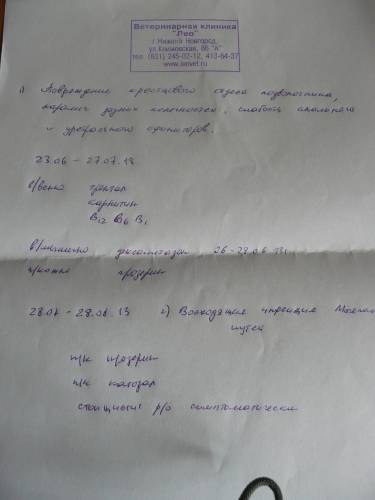 Ветеринарная клиника
"Лео"
г. Нижний Новгород,
ул. Климовская, 86 "А"
тел. (831) 245-02-12, 413-64-37
www.leovet.ru
1) Повреждение крестцового отдела позвоночника,
паралич задних конечностей, слабость анального
и уретрального сфинктеров.
23.06 – 27.07.13
в/вено трентал
карнитин
B12 B6 B1
в/мышечно дексаметазон 26-29.06.13г.
п/кожно прозерин
28.06 - 28.06.13 2) Восходящая инфекция
путей
п/к прозерин
п/к
р/о симптоматически